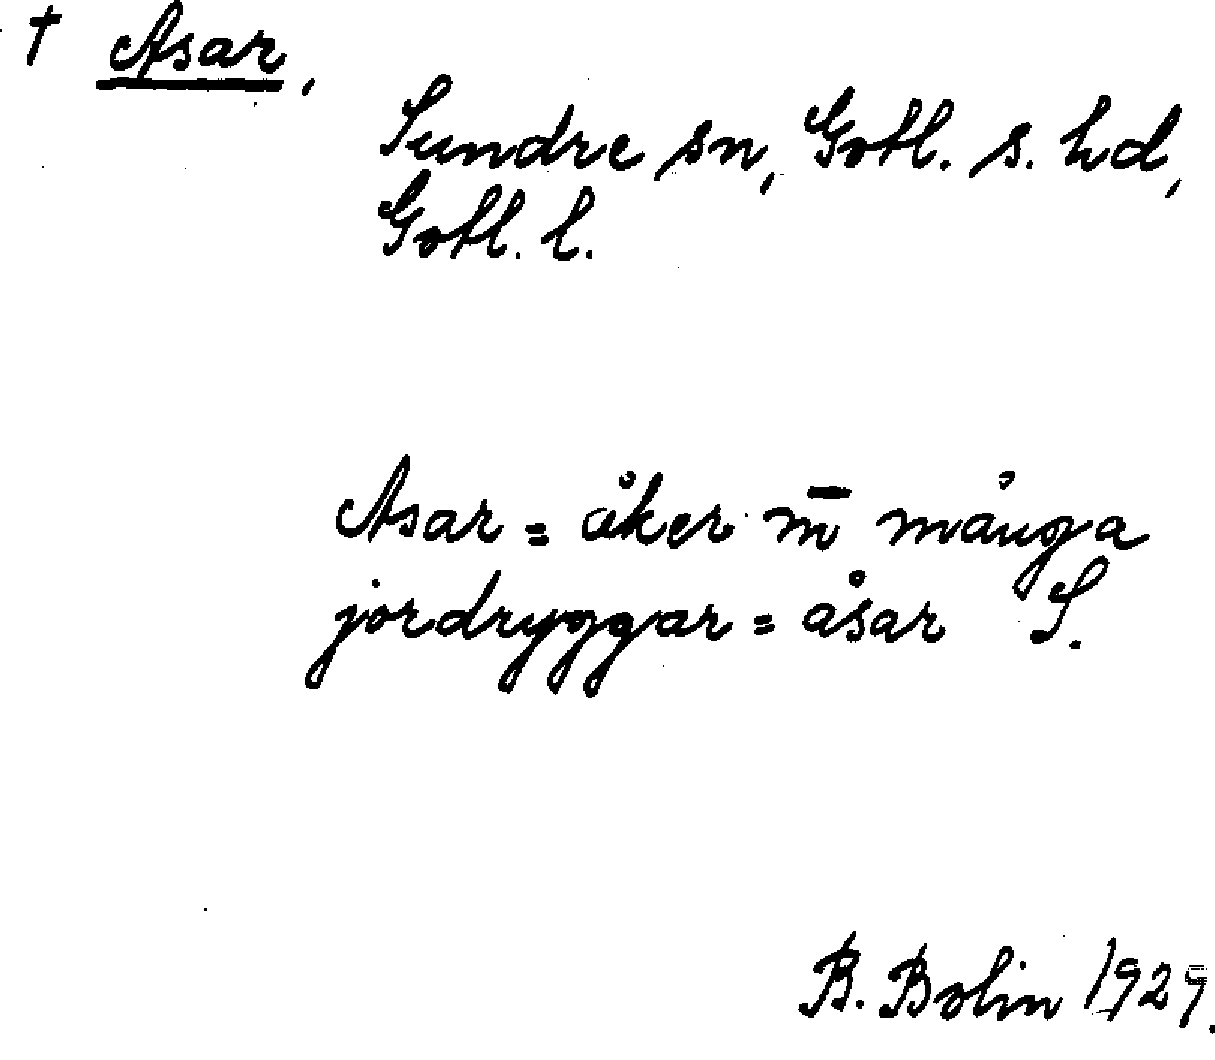 † Asar,
Sundre sn, Gotl. s. hd,
Gotl. l.
Asar = åker m̄ många
jordryggar = åsar S.
B. Bolin 1929.